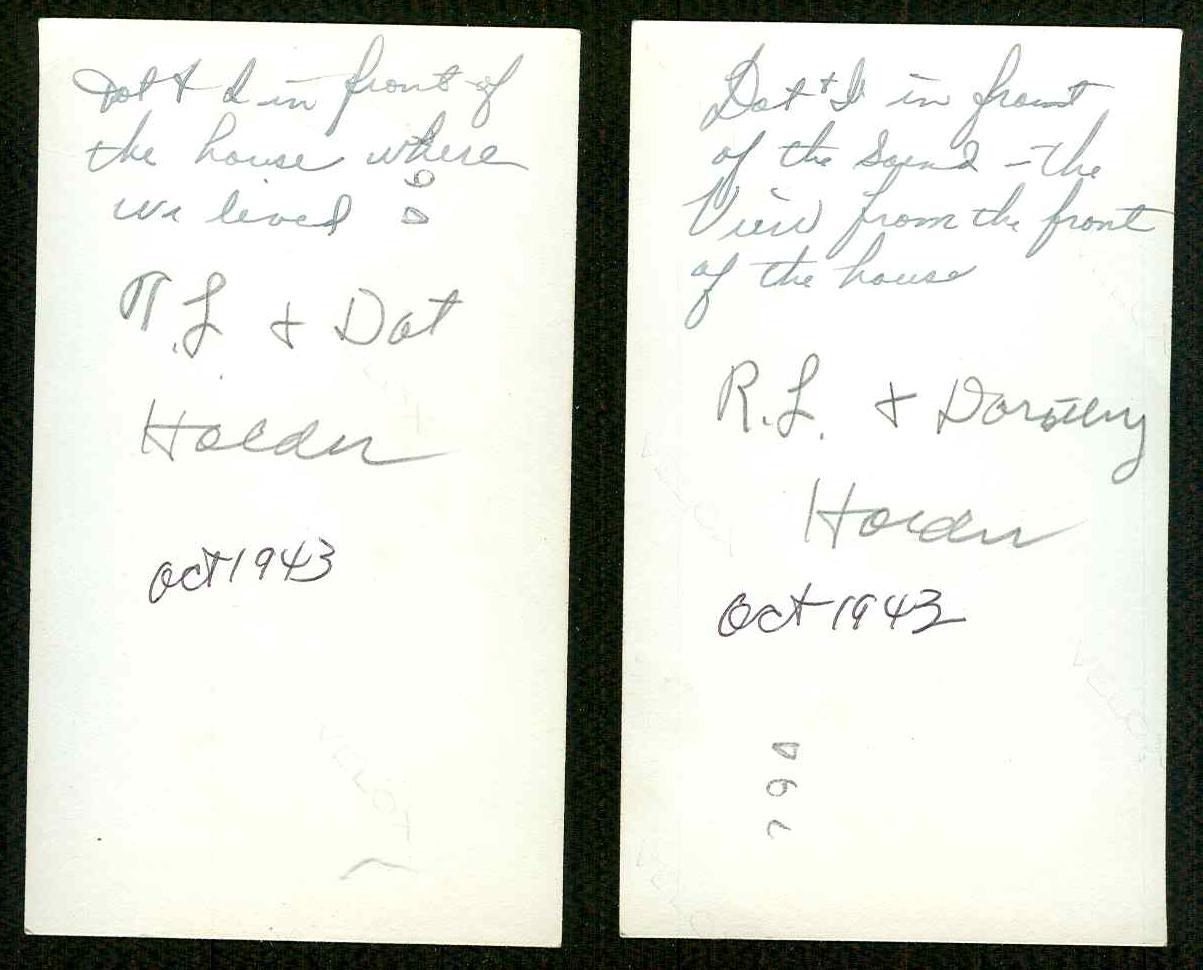 Dot & I in front of
the house where
we lived
R.L & Dot
Holder
Oct 1943
Dot + I in front
of the Sound - the
View from the front
of the house
R.L. & Dorothy
Holder
Oct 1943
VELOX